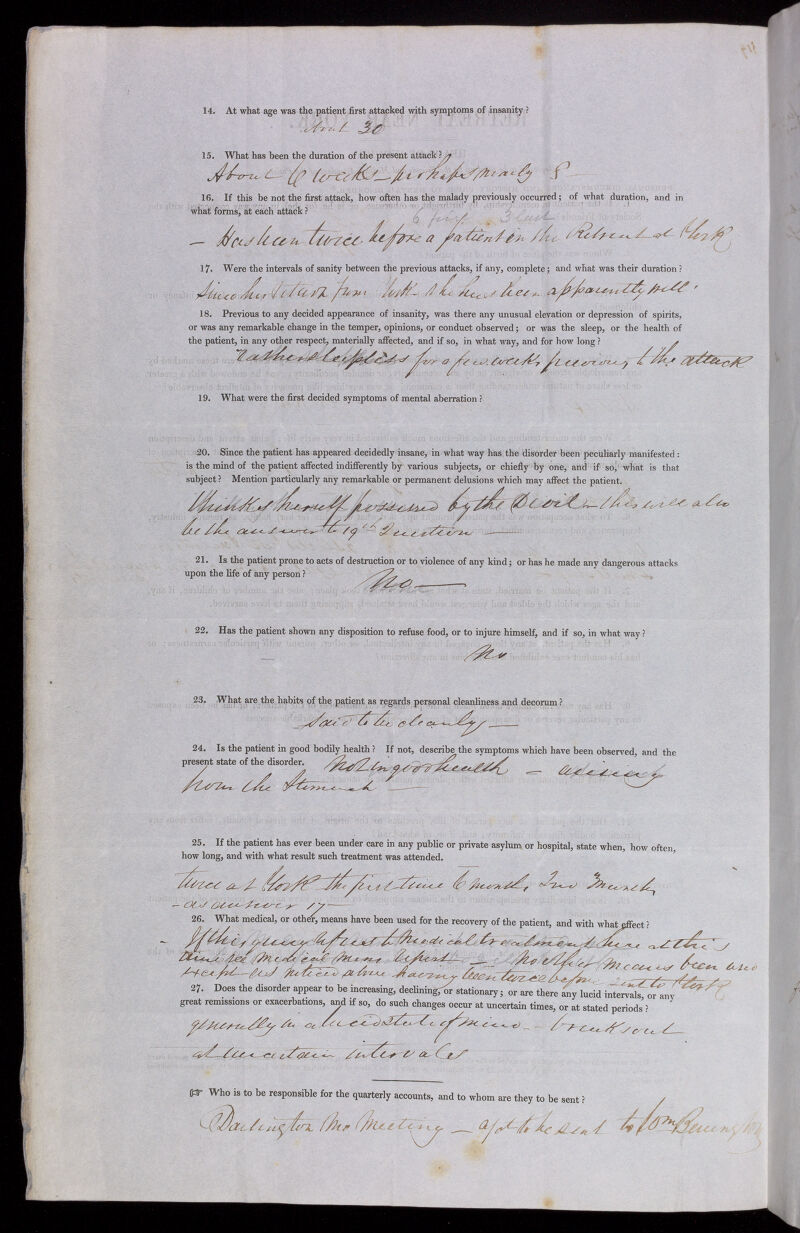 14. At what age was the patient first attacked with symptoms of insanity?
about 30
15. What has been the duration of the present attack?
About 6 weeks – perhaps nearly 8
16. If this be not the first attack, how often has the malady previously occurred; of what duration, and in
what forms, at each attack?
6 first 3 last
– Has been twice before a patient in the Retreat at York
17. Were the intervals of sanity between the previous attacks, if any, complete; and what was their duration?
Since her return from York – she has been apparently well.
18. Previous to any decided appearance of insanity, was there any unusual elevation or depression of spirits,
or was any remarkable change in the temper, opinions, or conduct observed; or was the sleep, or the health of
the patient, in any other respect, materially affected, and if so, in what way, and for how long?
rather sleepless for a few weeks previous to the attack
19. What were the first decided symptoms of mental aberration?
20. Since the patient has appeared decidedly insane, in what way has the disorder been peculiarly manifested:
is the mind of the patient affected indifferently by various subjects, or chiefly by one, and if so, what is that
subject? Mention particularly any remarkable or permanent delusions which may affect the patient.
thinks herself possessed by the Devil – this will also
be the answer to 19th Question —
21. Is the patient prone to acts of destruction or to violence of any kind; or has he made any dangerous attacks
upon the life of any person?
No —
22. Has the patient shown any disposition to refuse food, or to injure himself, and if so, in what way?
No
23. What are the habits of the patient as regards personal cleanliness and decorum?
Said to be cleanly —
24. Is the patient in good bodily health? If not, describe the symptoms which have been observed, and the
present state of the disorder.
Not in good health – arising
from the Stomach —
25. If the patient has ever been under care in any public or private asylum or hospital, state when, how often,
how long, and with what result such treatment was attended.
twice at York the first time 6 months 2nd 3 months
– as answer 17 –
26. What medical, or other, means have been used for the recovery of the patient, and with what effect?
If this query refers to Medical treatment here at this
time see Medical mans report – No other means been used
except as noticed above having been twice before sent to York
27. Does the disorder appear to be increasing, declining, or stationary; or are there any lucid intervals, or any
great remissions or exacerbations, and if so, do such changes occur at uncertain times, or at stated periods?
generally in a lucid state of mind – breaks out
at uncertain intervales
☞ Who is to be responsible for the quarterly accounts, and to whom are they to be sent?
Darlington Mo Meeting – a/ct to be sent to Wm